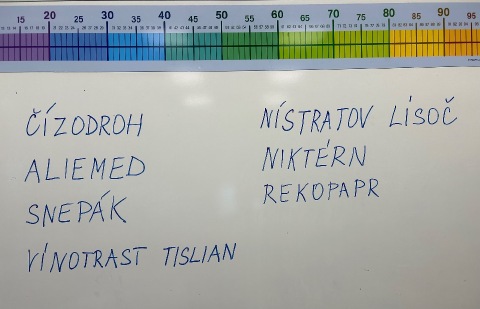 15 20 25 30 35 40 45 50 55 60 65 70 75 80 85 90 95
ČÍZODROH
ALIEMED
SNEPÁK
VÍNOTRAST TISLIAN
NÍSTRATOV LÍSOČ
NIKTÉRN
REKOPAPR